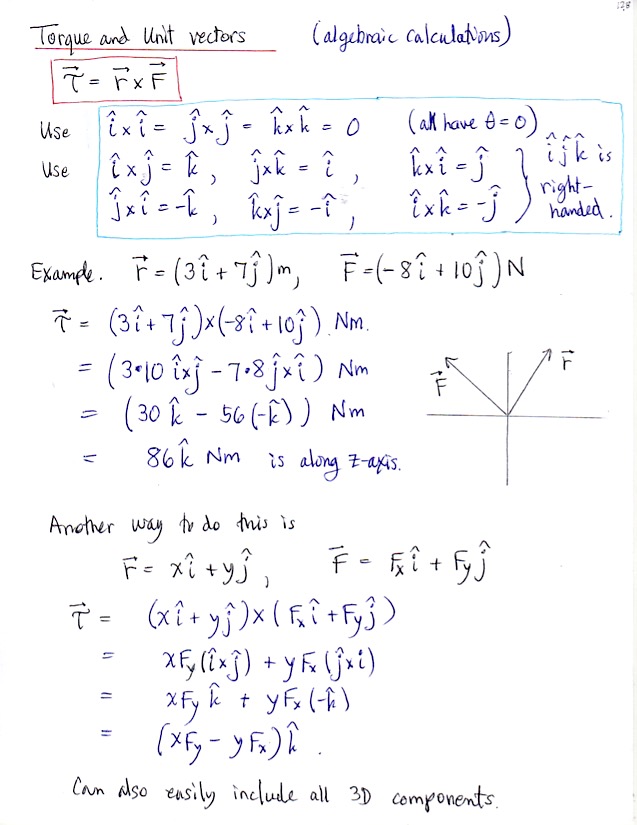 128
Torque and Unit vectors (algebraic calculations)
τ⃗ = r⃗ × F⃗
Use î×î = ĵ×ĵ = k̂×k̂ = 0 (all have θ=0)
Use î×ĵ = k̂, ĵ×k̂ = î, k̂×î = ĵ
ĵ×î = -k̂, k̂×ĵ = -î, î×k̂ = -ĵ
î ĵ k̂ is
right-
handed.
Example. r⃗ = (3î + 7ĵ)m, F⃗ = (-8î + 10ĵ) N
τ⃗ = (3î + 7ĵ)×(-8î + 10ĵ) Nm.
= (3•10 î×ĵ - 7•8 ĵ×î) Nm
= (30 k̂ - 56(-k̂)) Nm
= 86 k̂ Nm is along z-axis.
F⃗
r⃗
Another way to do this is
r⃗ = xî + yĵ, F⃗ = Fxî + Fyĵ
τ⃗ = (xî + yĵ)×(Fxî + Fyĵ)
= xFy(î×ĵ) + yFx(ĵ×i)
= xFy k̂ + yFx(-k̂)
= (xFy - yFx)k̂.
Can also easily include all 3D components.